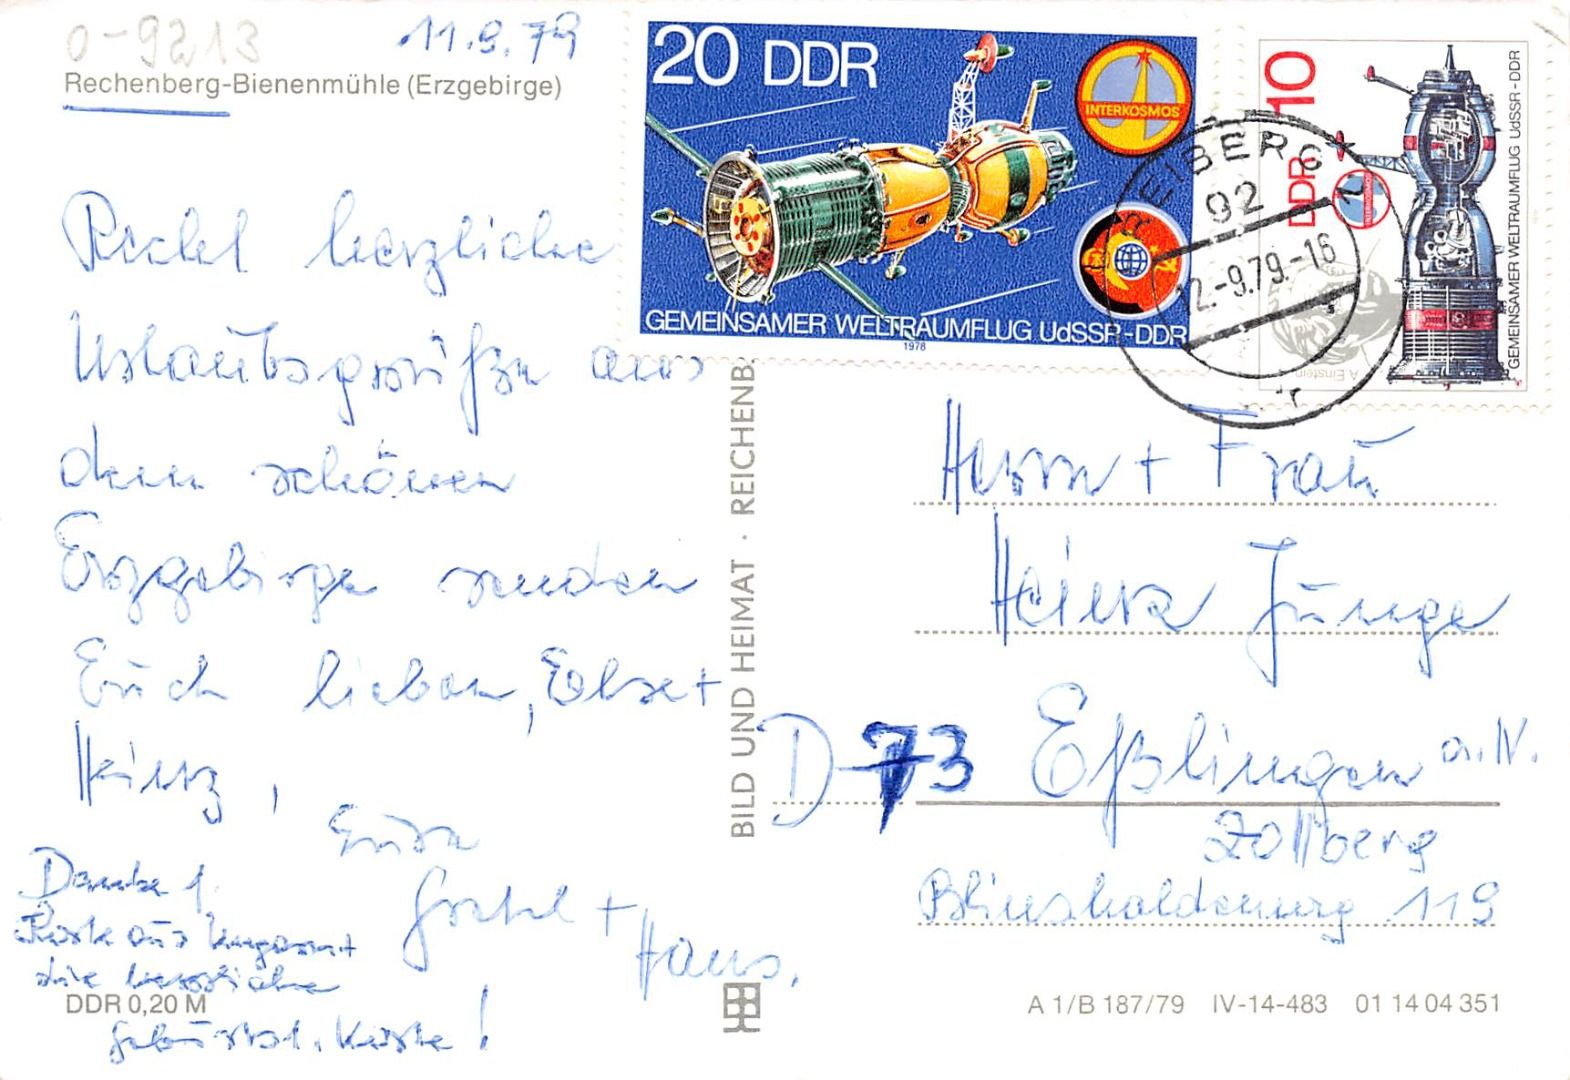 0-9213
11.9.79
Rechenberg-Bienenmühle (Erzgebirge)
Recht herzliche
Urlaubsgrüße aus
dem schönen
Erzgebirge senden
Euch lieben, Else +
Heinz,
Eure
Gretel +
Hans.
Danke f.
Karte aus Ungarn +
die herzliche
Geburtst. Karte!
DDR 0,20 M
BILD UND HEIMAT · REICHENB.
20 DDR
INTERKOSMOS
GEMEINSAMER WELTRAUMFLUG UdSSR-DDR
1978
10
DDR
INTERKOSMOS
A. Einstein
GEMEINSAMER WELTRAUMFLUG UdSSR-DDR
FREIBERG 1
92
12.-9.79.-16
r
Herrn + Frau
Heinz Junge
D-73 Eßlingen a.N.
Zollberg
Blinshaldenweg 119
A 1/B 187/79 IV-14-483 01 14 04 351